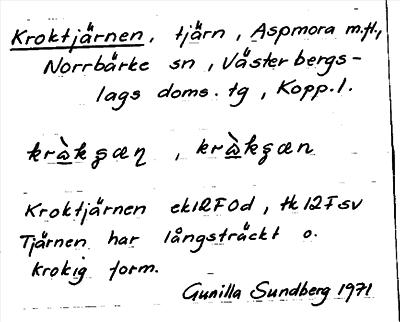 Kroktjärnen, tjärn, Aspmora m.fl.,
Norrbärke sn, Västerbergs-
lags doms. tg, Kopp. l.
Kroktjärnen ek12F0d, tk12Fsv
Tjärnen har långsträckt o.
krokig form.
Gunilla Sundberg 1971